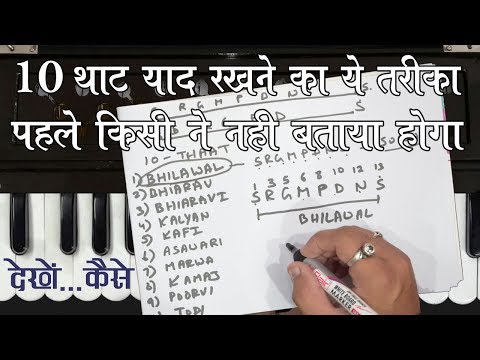 10 थाट याद रखने का ये तरीका
पहले किसी ने नहीं बताया होगा
R G M P D N S
10 - THAAT
1) BHILAWAL
2) BHAIRAV
3) BHIARAVI
4) KALYAN
5) KAFI
6) ASAWARI
7) MARWA
8) KAMAJ
9) POORVI
TODI
1 3 5 6 8 10 12 13
S R G M P D N Ṡ
BHILAWAL
देखें...कैसे